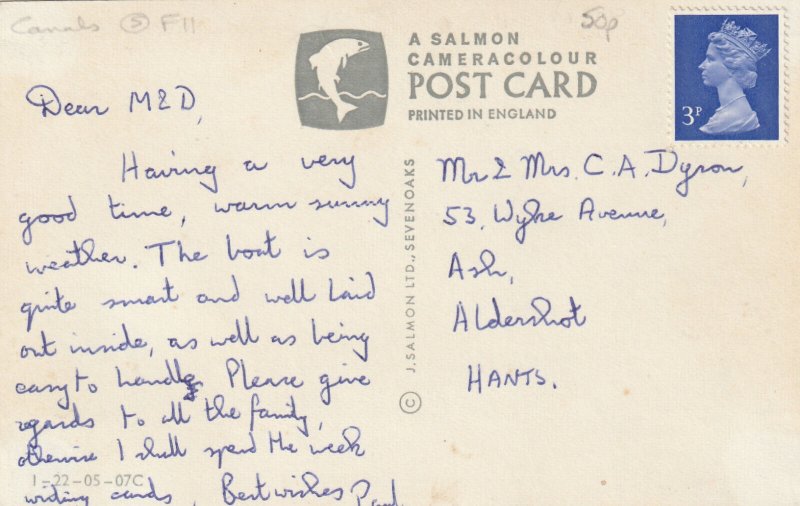 Canals ⑤ F11
50p
A SALMON
CAMERACOLOUR
POST CARD
PRINTED IN ENGLAND
3P
Dear M & D,
Having a very
good time, warm sunny
weather. The boat is
quite smart and well laid
out inside, as well as being
easy to handle. Please give
regards to all the family,
otherwise I shall spend the week
writing cards, Best wishes Paul
1-22-05-07C
© J. SALMON LTD., SEVENOAKS
Mr & Mrs. C. A. Dyson,
53, Wyke Avenue,
Ash,
Aldershot
HANTS.